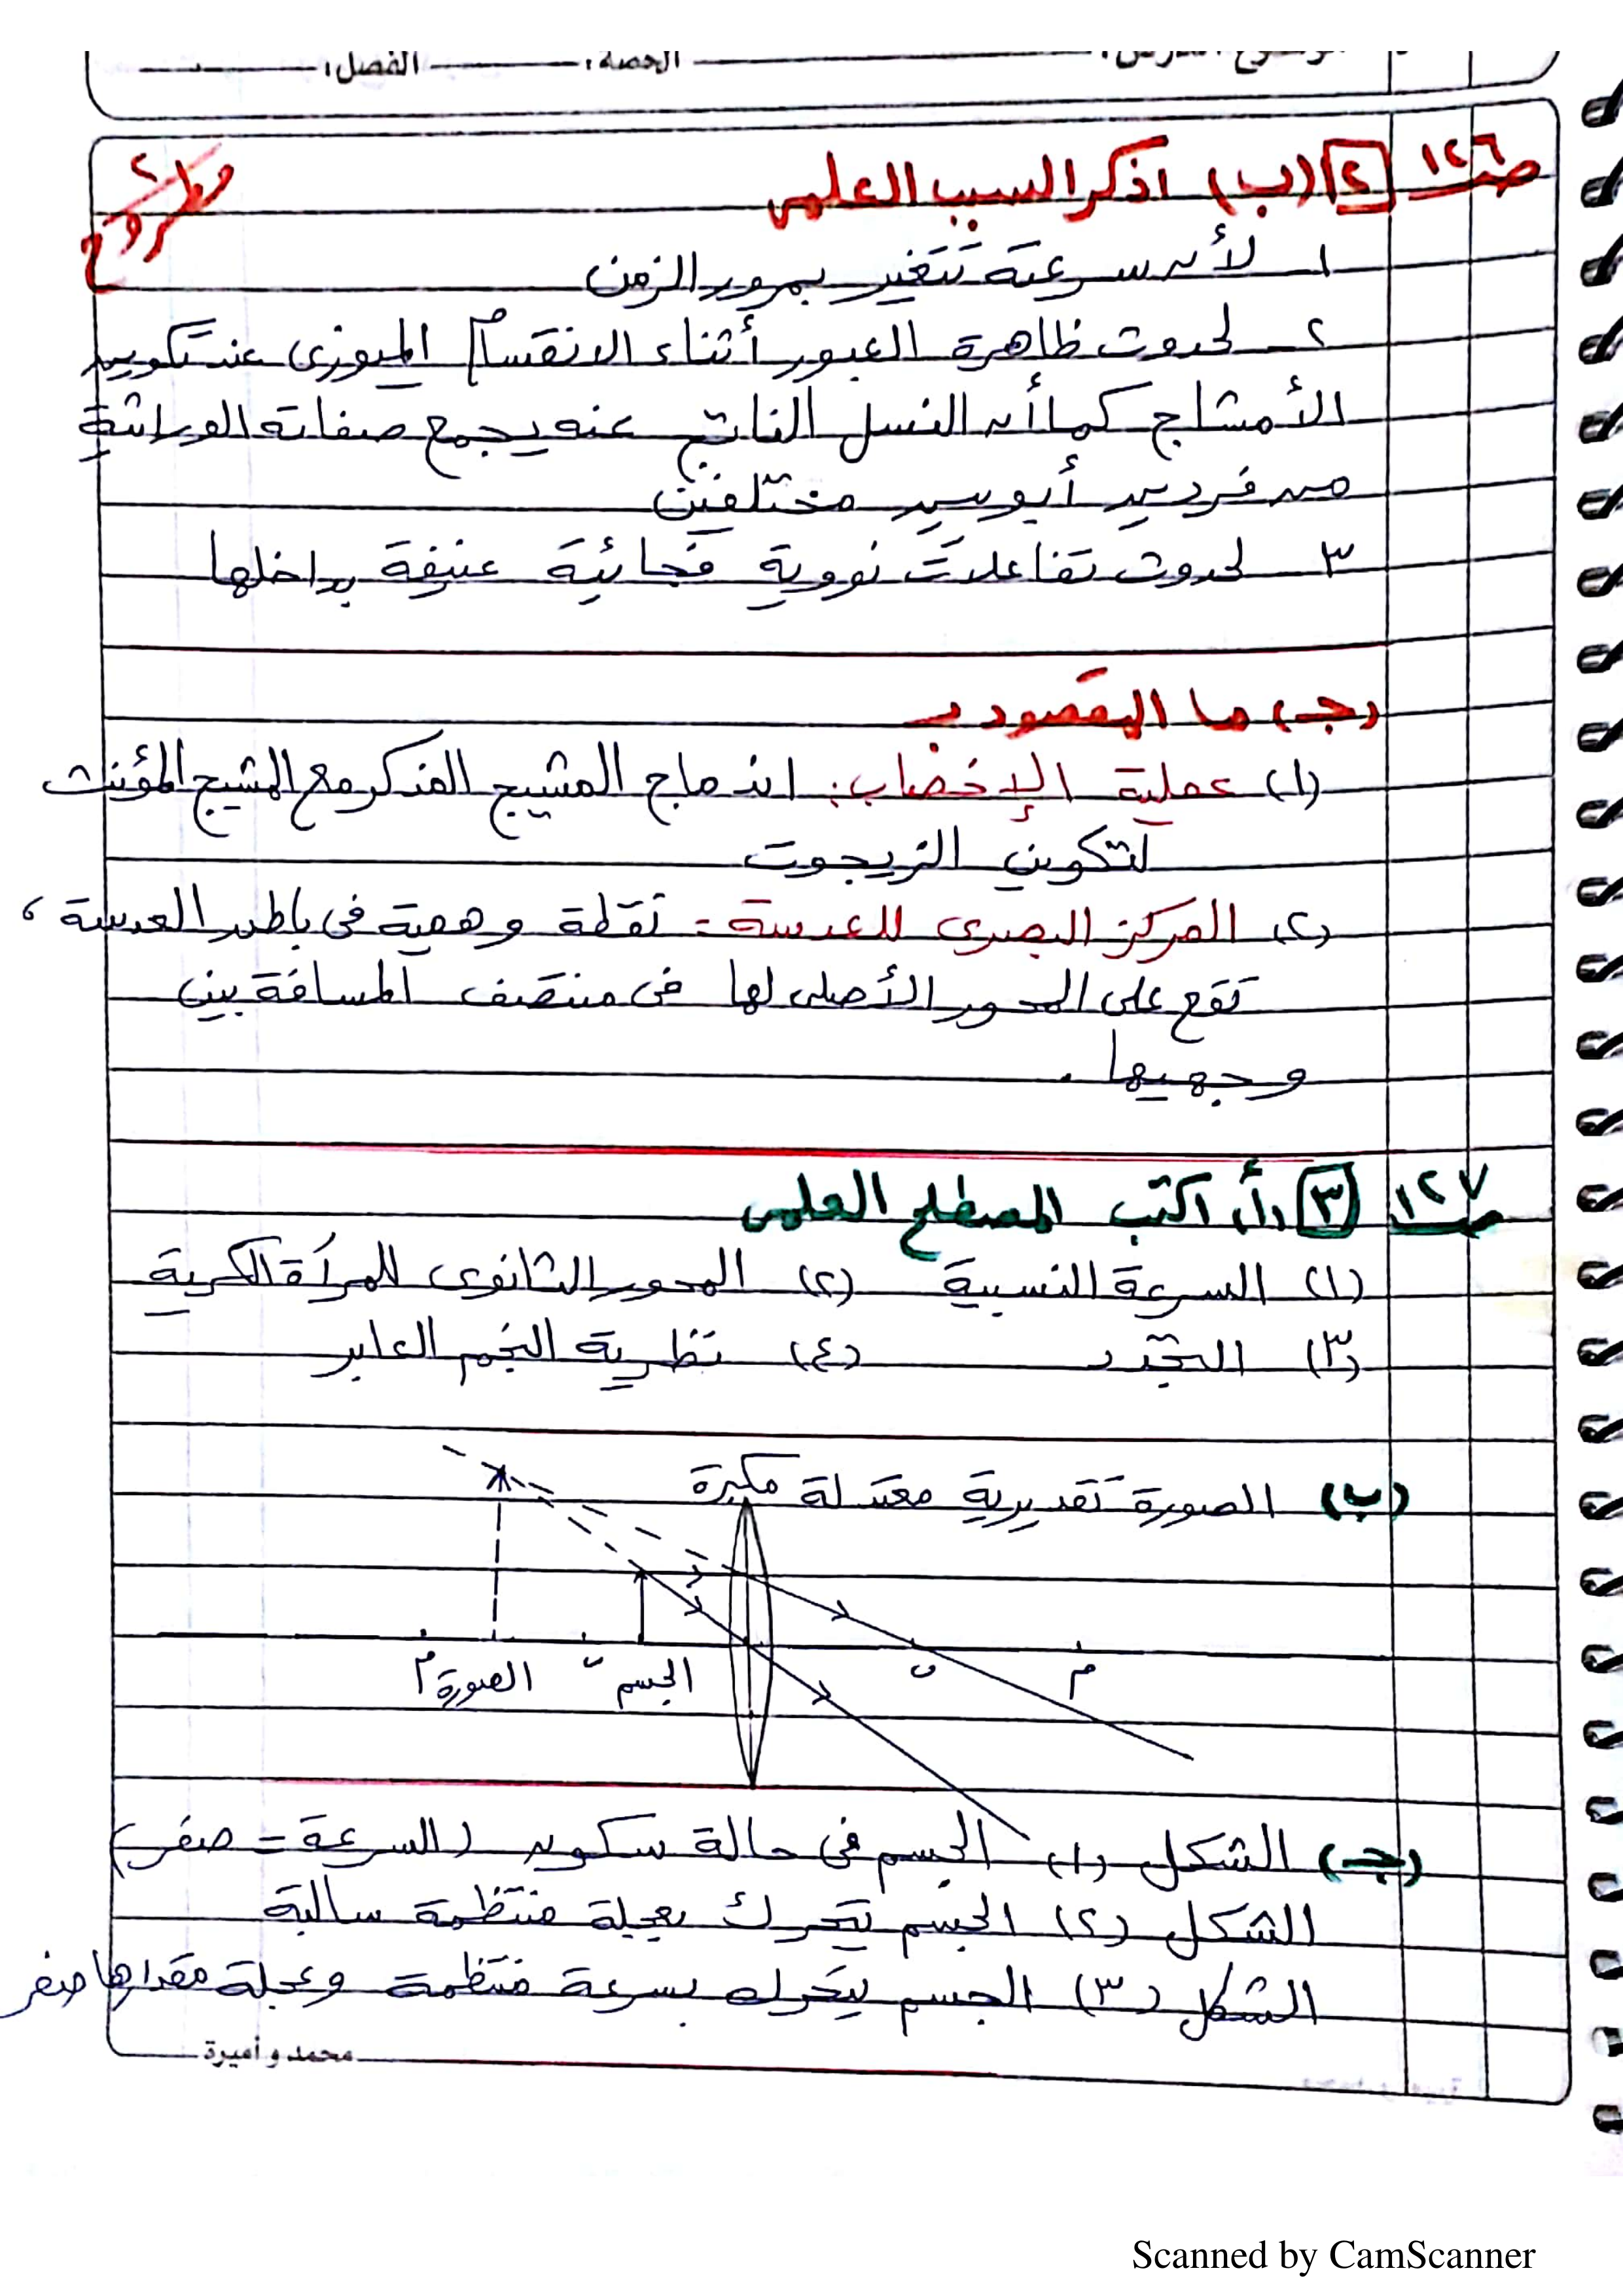 الحصة: الفصل:
ص١٢٦ ٢ (ب) اذكر السبب العلمى
١ـ لأن سرعته تتغير بمرور الزمن
٢ـ لحدوث ظاهرة العبور أثناء الانقسام الميوزى عند تكوين
الأمشاج كما أن النسل الناتج عنه يجمع صفاته الوراثية
من فردين أبويين مختلفين
٣ـ لحدوث تفاعلات نووية فجائية عنيفة بداخلها
(جـ) ما المقصود بـ
(١) عملية الإخصاب: اندماج المشيج المذكر مع المشيج المؤنث
لتكوين الزيجوت
(٢) المركز البصرى للعدسة: نقطة وهمية فى باطن العدسة ،
تقع على المحور الأصلى لها فى منتصف المسافة بين
وجهيها .
ص١٢٧ ٣ (أ) اكتب المصطلح العلمى
(١) السرعة النسبية (٢) المحور الثانوى للمرآة الكرية
(٣) التجدد (٤) نظرية النجم العابر
(ب) الصورة تقديرية معتدلة مكبرة
م ن الجسم ن الصورة م
(جـ) الشكل (١) الجسم فى حالة سكون (السرعة = صفر)
الشكل (٢) الجسم يتحرك بعجلة منتظمة سالبة
الشكل (٣) الجسم يتحرك بسرعة منتظمة وعجلة مقدارها صفر
محمد و أميرة
Scanned by CamScanner